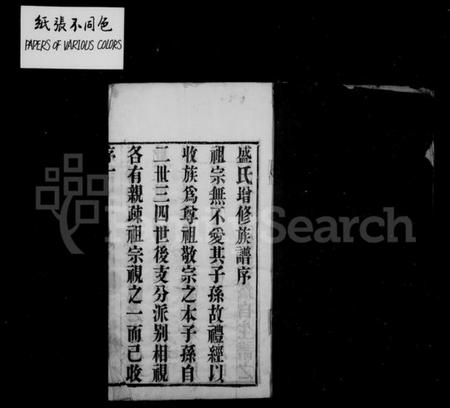 紙張不同色
PAPERS OF VARIOUS COLORS
盛氏增修族譜序
祖宗無不愛其子孫故禮經以
收族爲尊祖敬宗之本子孫自
二世三四世後支分派別相視
各有親疎祖宗視之一而已收
序一
Search